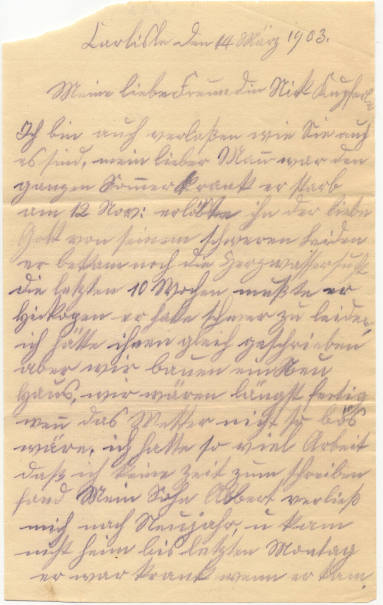 Carlisle den 14 März 1903.
Meine liebe Freundin Nick
Ich bin auch verlaßen wie Sie auch
es sind, mein lieber Mann war den
ganzen Sommer krank er starb
am 12 Nov: erlößte ihn der liebe
Gott von seinem schweren Leiden
er bekam noch die Herzwassersucht
die letzten 10 Wochen mußte er
er hatte schwer zu leiden,
ich hätte ihnen gleich geschrieben
aber wir bauen ein Neu
Haus, wir wären längst fertig
wenn das Wetter nicht so bös
wäre, ich hatte so viel Arbeit
daß ich keine Zeit zum schreiben
fand Mein Sohn Albert verließ
mich nach Neujahr, u kam
nicht heim bis letzten Montag
er war krank wenn er kam.